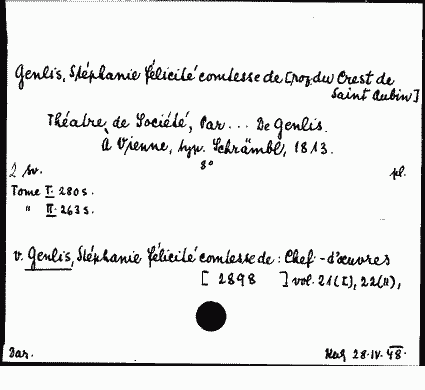 Genlis, Stéphanie Félicité comtesse de [roz. du Crest de
Saint Aubin]
Théatre de Société, Par... De Genlis.
A Vienne, typ. Schrämbl, 1813.
8°
2 sv. pl.
Tome I. 280 s.
" II. 263 s.
v. Genlis, Stéphanie Félicité comtesse de: Chef-d'œuvres
[ 2898 ] vol. 21(I), 22(II),
Dar. 28.IV.48.